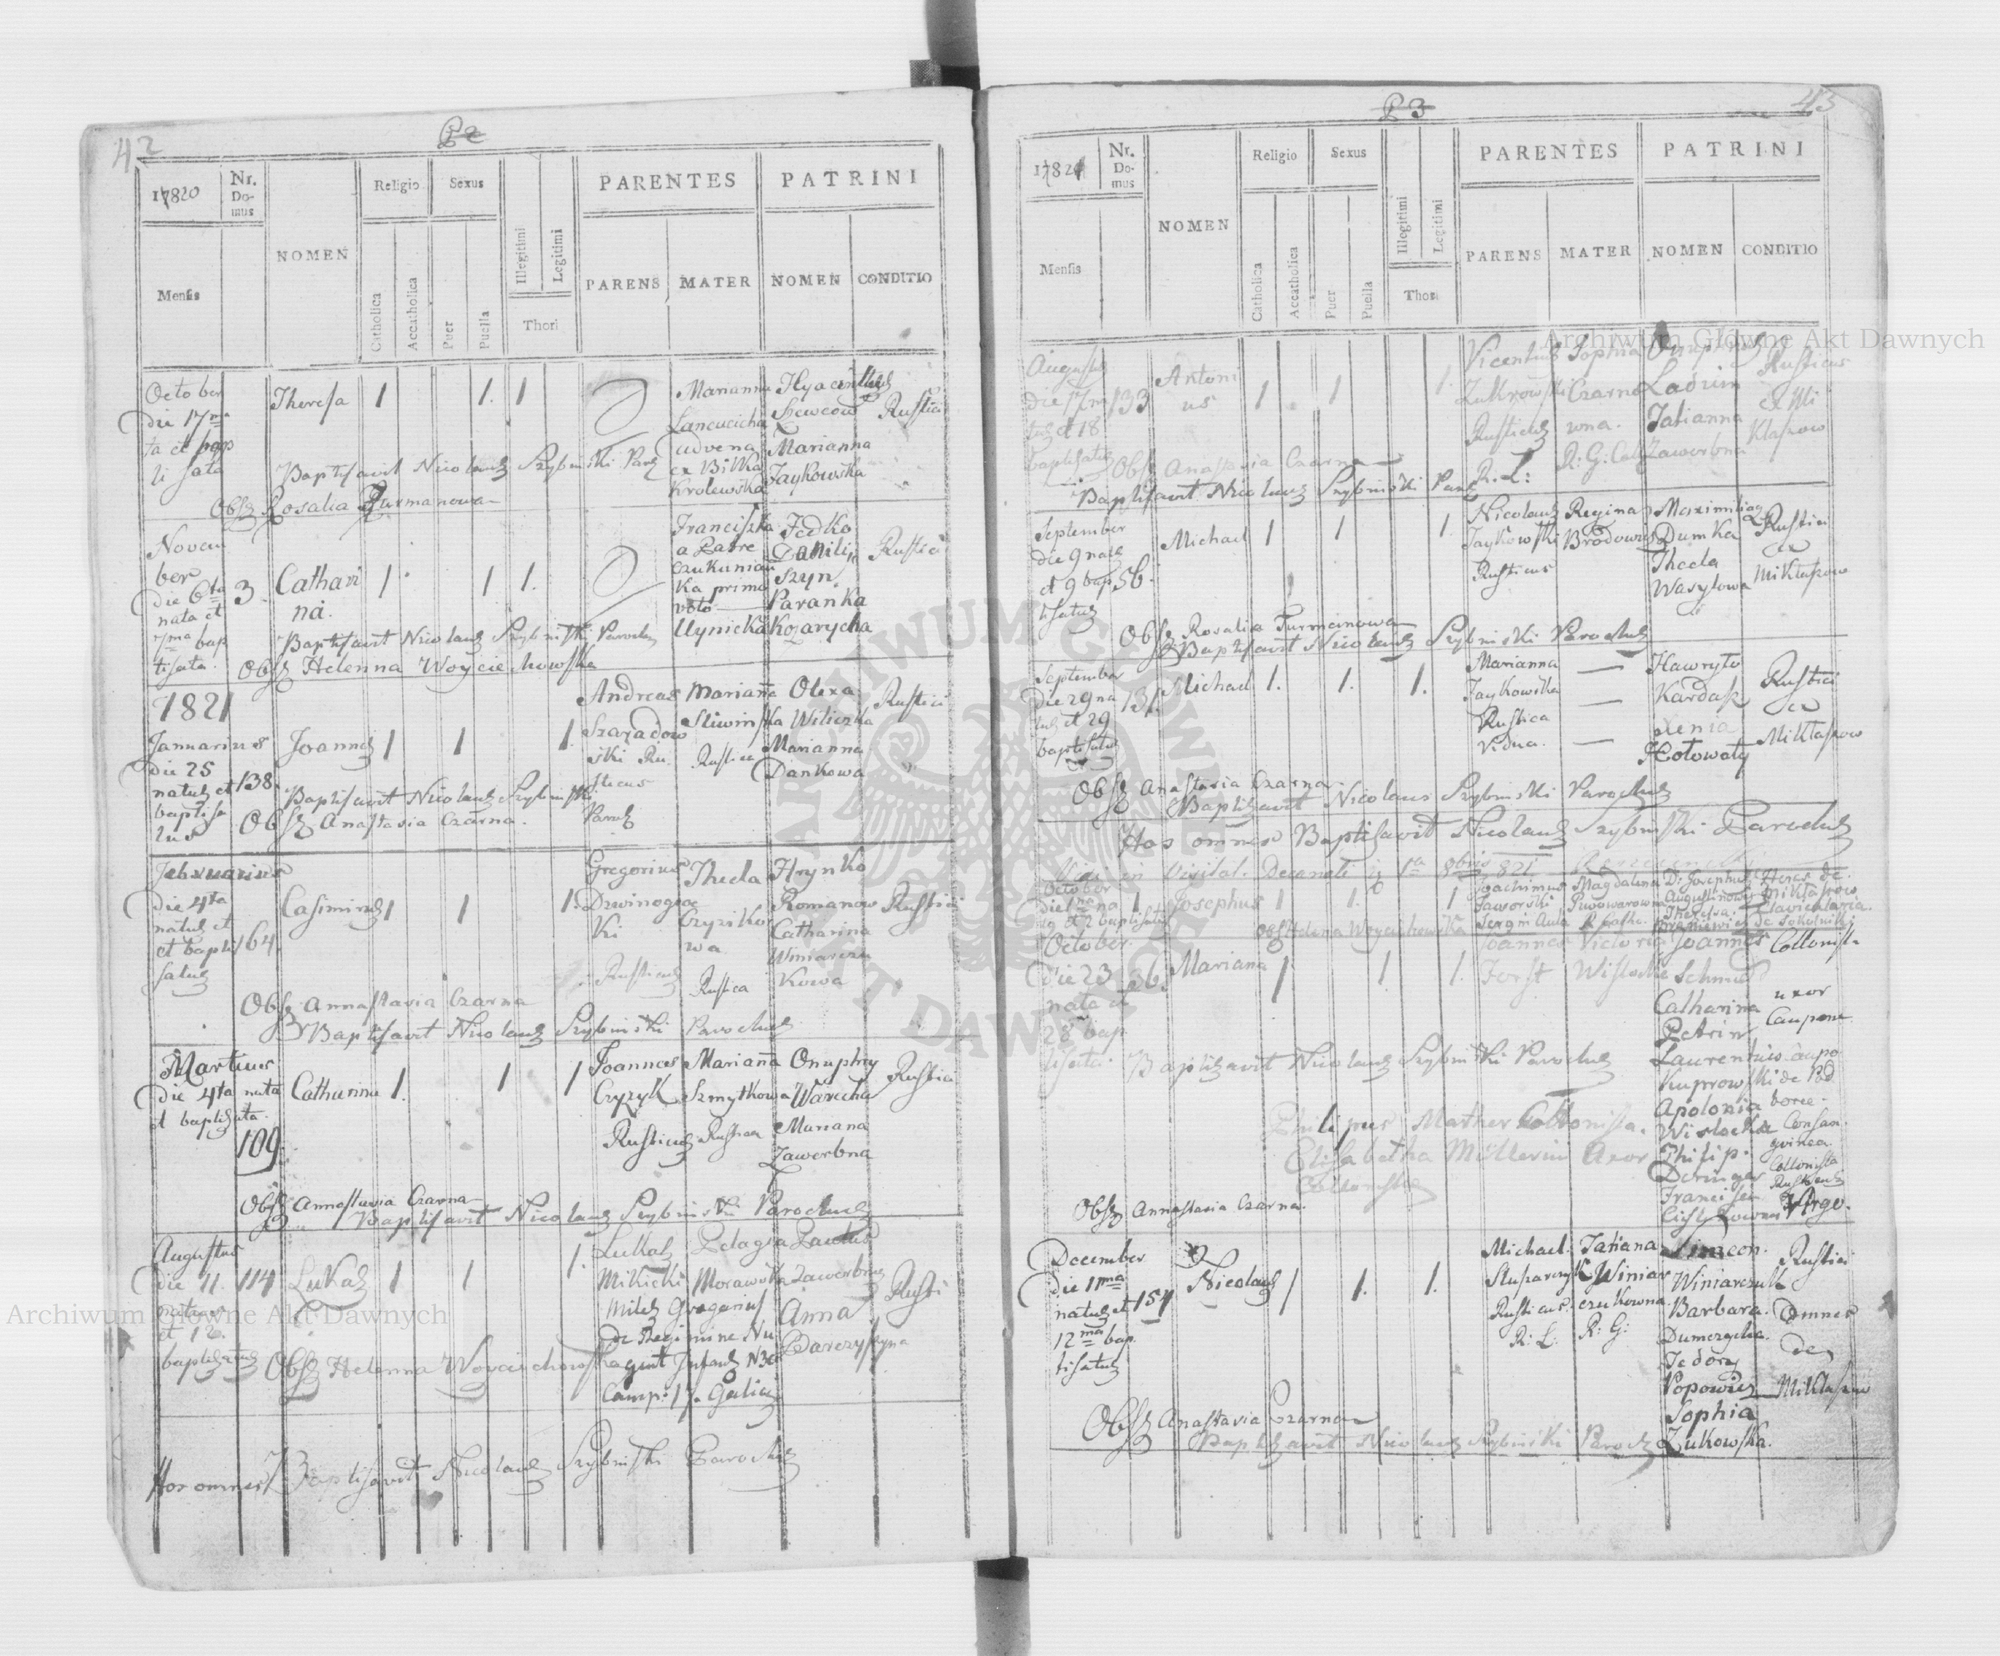 42
P2
17820
Nr. Domus
Mensis
NOMEN
Religio
Catholica
Accatholica
Sexus
Puer
Puella
Illegitimi
Legitimi
Thori
PARENTES
PARENS
MATER
PATRINI
NOMEN
CONDITIO
October
die 17ma
Theresa 1 1. 1
Marianna
Lancucicha
advena
ex Bilka
Krolewska
Hyacinthus
Szewcow
Marianna
Jaykowska
Rustici
Baptisavit Nicolaus Szybinski Par
Obs Rosalia Furmanowa
Novem
ber
die 6ta
nata et
7ma bap
tisata.
3
Cathari
na.
1 1 1.
Franciszka
a Patre
ka primo
voto
Uynicka
Fedko
Danilis
szyn
Paranka
Kozarycha
Rustici
Baptisavit Nicolaus Szybinski Parochus
Obs Helenna Woyciechowska
1821
Januarius
die 25
natus et
baptisa
tus
138.
Joannes 1 1 1.
Andreas
Szaradow
ski Ru
sticus
Marianna
Sliwinska
Rustica
Olexa
Wiliczka
Marianna
Dankowa
Rustici
Baptisavit Nicolaus Szybinski
Paro
Obs Anastasia Czarna.
Februarius
die 4ta
natus et
et bapti
satus
164
Casimirus 1 1 1.
Gregorius
Dzwinogrodz
ki
Rusticus
Thecla
Czyzyko
wa
Rustica
Hrynko
Romanow
Catharina
Winiarczu
kowa
Rustici
Obs Annastasia Czarna
Baptisavit Nicolaus Szybinski Parochus
Martius
die 4ta nata
et baptisata.
109.
Catharina 1. 1 1
Joannes
Czyzyk
Rusticus
Marianna
Szmytkowa
Rustica
Onuphry
Warecha
Mariana
Zawerbna
Rustici
Obs Annastasia Czarna
Baptisavit Nicolaus Szybinski Parochus
Augustus
die 11.
natus
et 12.
baptizatus
114
Lukas 1 1 1.
Lukas
Mikicki
Miles Gregarius
de Regimine Nu
gent Infant N30
Camp: 17. Galicia
Pelagia
Morawska
Pautus
Zawerbny
Anna
Barczyszyna
Rusti
Obs Helenna Woyciechowska
Hos omnes Baptisavit Nicolaus Szybinski Parochus
43
P3
17821
Nr. Domus
Mensis
NOMEN
Religio
Catholica
Accatholica
Sexus
Puer
Puella
Illegitimi
Legitimi
Thori
PARENTES
PARENS
MATER
PATRINI
NOMEN
CONDITIO
Augusti
die 17 na
tus et 18
baptisatus
133
Antoni
us
1 1 1.
Vicentius
Zukrowski
Rusticus
R. L:
Sophia
Czarno
wna.
R: G: Cat
Onuphrius
Ladzim
Tatianna
Zawerbna
Rusticus
ex Mi
klaszow
Obs Anastasia Czarna
Baptisavit Nicolaus Szybinski Paro
September
die 9 natus
et 9 bap
tisatus
56.
Michael 1 1 1.
Nicolaus
Jaykowski
Rusticus
Regina
Brodowicz
Maximilian
Dumka
Thecla
Wasylowa
Rustici
ex
Miklaszow
Obs Rosalia Furmanowa
Baptisavit Nicolaus Szybinski Parochus
September
die 29 na
tus et 29
baptisatus
131.
Michael 1. 1. 1.
Marianna
Jaykowska
Rustica
Vidua.
Hawrylo
Kardasz
Xenia
Hotowaty
Rustici
ex
Miklaszow
Obs Anastasia Czarna
Baptizavit Nicolaus Szybinski Parochus
Hos omnes Baptisavit Nicolaus Szybinski Parochus
Vidi in Visitat. Decanali 1a 8bris 821.
October
die 1ma na
tus et 2 baptisatus
1
Josephus 1 1. 1
Joachimus
Jaworski
Serg in Aula
Magdalena
Piwowarowna
R. Catho.
D: Josephus
Augustinowicz
Theresa
Heres de
Miklaszow
Obs Helena Woyciechowska
October
die 23
nata et
28 bap
tisata
26.
Mariana 1. 1 1.
Joannes
Forst
Victoria
Wislocka
Joannes
Schmid
Catharina
Petrin
Laurentius
Kuprowski
Apolonia
Wislocka
Philip.
Deringer
Francisca
Collonista
uxor
Caupona
caupo
de Pod
borce.
Consan
guinea
Collonista
Rusticus
Virgo.
Baptizavit Nicolaus Szybinski Parochus
Philipus Mather Collonista.
Elisabetha Müllerin Uxor
Collonista
Obs Annastasia Czarna.
December
die 11ma
natus et
12ma bap
tisatus
154
Nicolaus 1 1. 1.
Michael
Stuparczyk
Rusticus
R: L:
Tatiana
Winiar
czukowna
R: G:
Simeon.
Winiarczuk
Barbara.
Dumezycha.
Fedory
Popowicz
Sophia
Zukowska.
Rustici
Omnes
de
Miklaszow
Obs Anastasia Czarna
Baptizavit Nicolaus Szybinski Paroch
Archiwum Główne Akt Dawnych
Archiwum Główne Akt Dawnych
ARCHIWUM GŁÓWNE AKT DAWNYCH